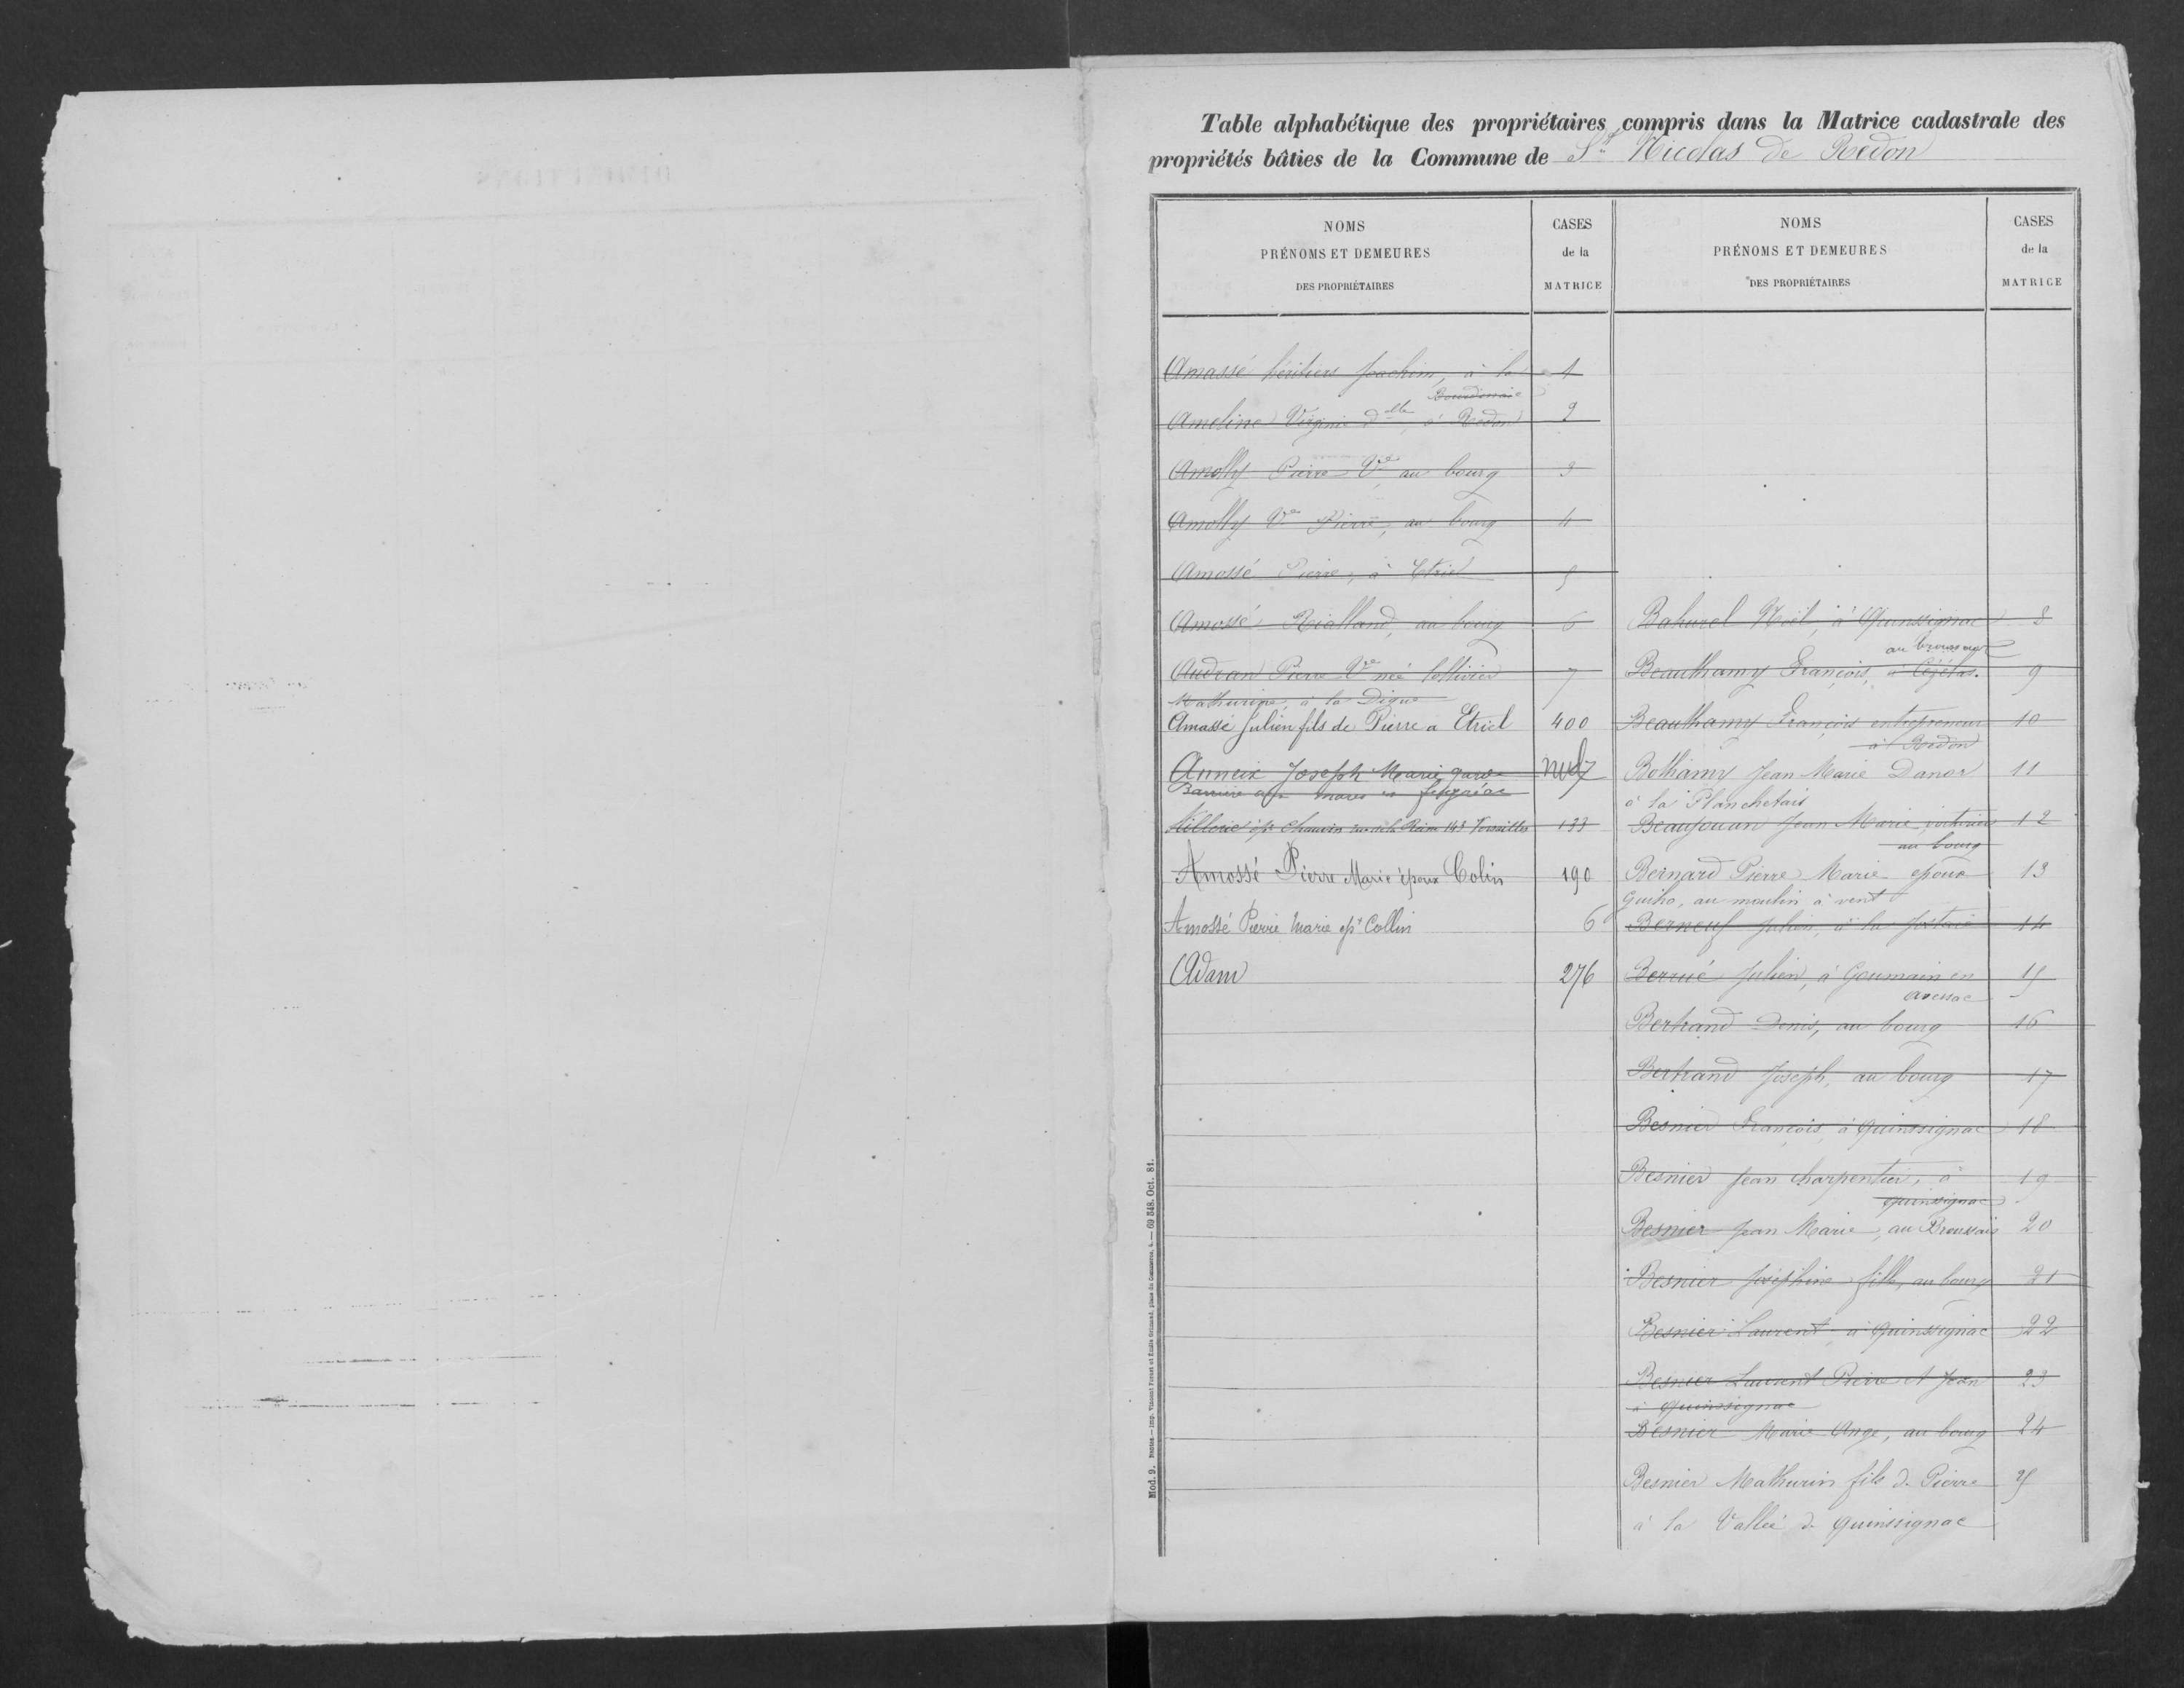 Table alphabétique des propriétaires compris dans la Matrice cadastrale des
propriétés bâties de la Commune de St Nicolas de Redon
NOMS
PRÉNOMS ET DEMEURES
DES PROPRIÉTAIRES
CASES
de la
MATRICE
Amassé héritiers Joachim, à la 1
Bourdonnaie
Ameline Virginie dlle, à Redon 2
Amolly Pierre Ve au bourg 3
Amolly Ve Pierre, au bourg 4
Amossé Pierre, à Etriel 5
Amossé Rialland, au bourg 6
Audran Pierre Ve née Lollivier 7
Mathurine, à la Digue
Amassé Julien fils de Pierre a Etriel 400
Anneix Joseph Marie garde
Barrière aux mares en
époux Chauvin rue de la Reine 143 Versailles 133
Amossé Pierre Marie époux Colin 190
Amossé Pierre Marie ept Collin 6
Adam 276
NOMS
PRÉNOMS ET DEMEURES
DES PROPRIÉTAIRES
CASES
de la
MATRICE
Bahurel Noël, à Quinssignac 8
au broussais
Beauthamy François, à 9
Beauthamy François entrepreneur 10
à Redon
Bothamy Jean Marie Danor 11
à la Planchetais
Beaujouan Jean Marie, 12
au bourg
Bernard Pierre Marie epoux 13
Guiho, au moulin à vent
Berneuf Julien, à la 14
Berrué Julien, à Goumain en 15
avessac
Bertrand Denis, au bourg 16
Bertrand Joseph, au bourg 17
Besnier François, à Quinssignac 18
Besnier Jean charpentier, à 19
Quinssignac
Besnier Jean Marie, au Broussais 20
Besnier Joséphine fille, au bourg 21
Besnier Laurent, à Quinssignac 22
Besnier Laurent Pierre et Jean 23
à Quinssignac
Besnier Marie Ange, au bourg 24
Besnier Mathurin fils de Pierre 25
à la Vallée de Quinssignac
Mod. 9. Nantes. — Imp. Vincent Forest et Émile Grimaud, place du Commerce, 4. — 69 348. Oct. 81.